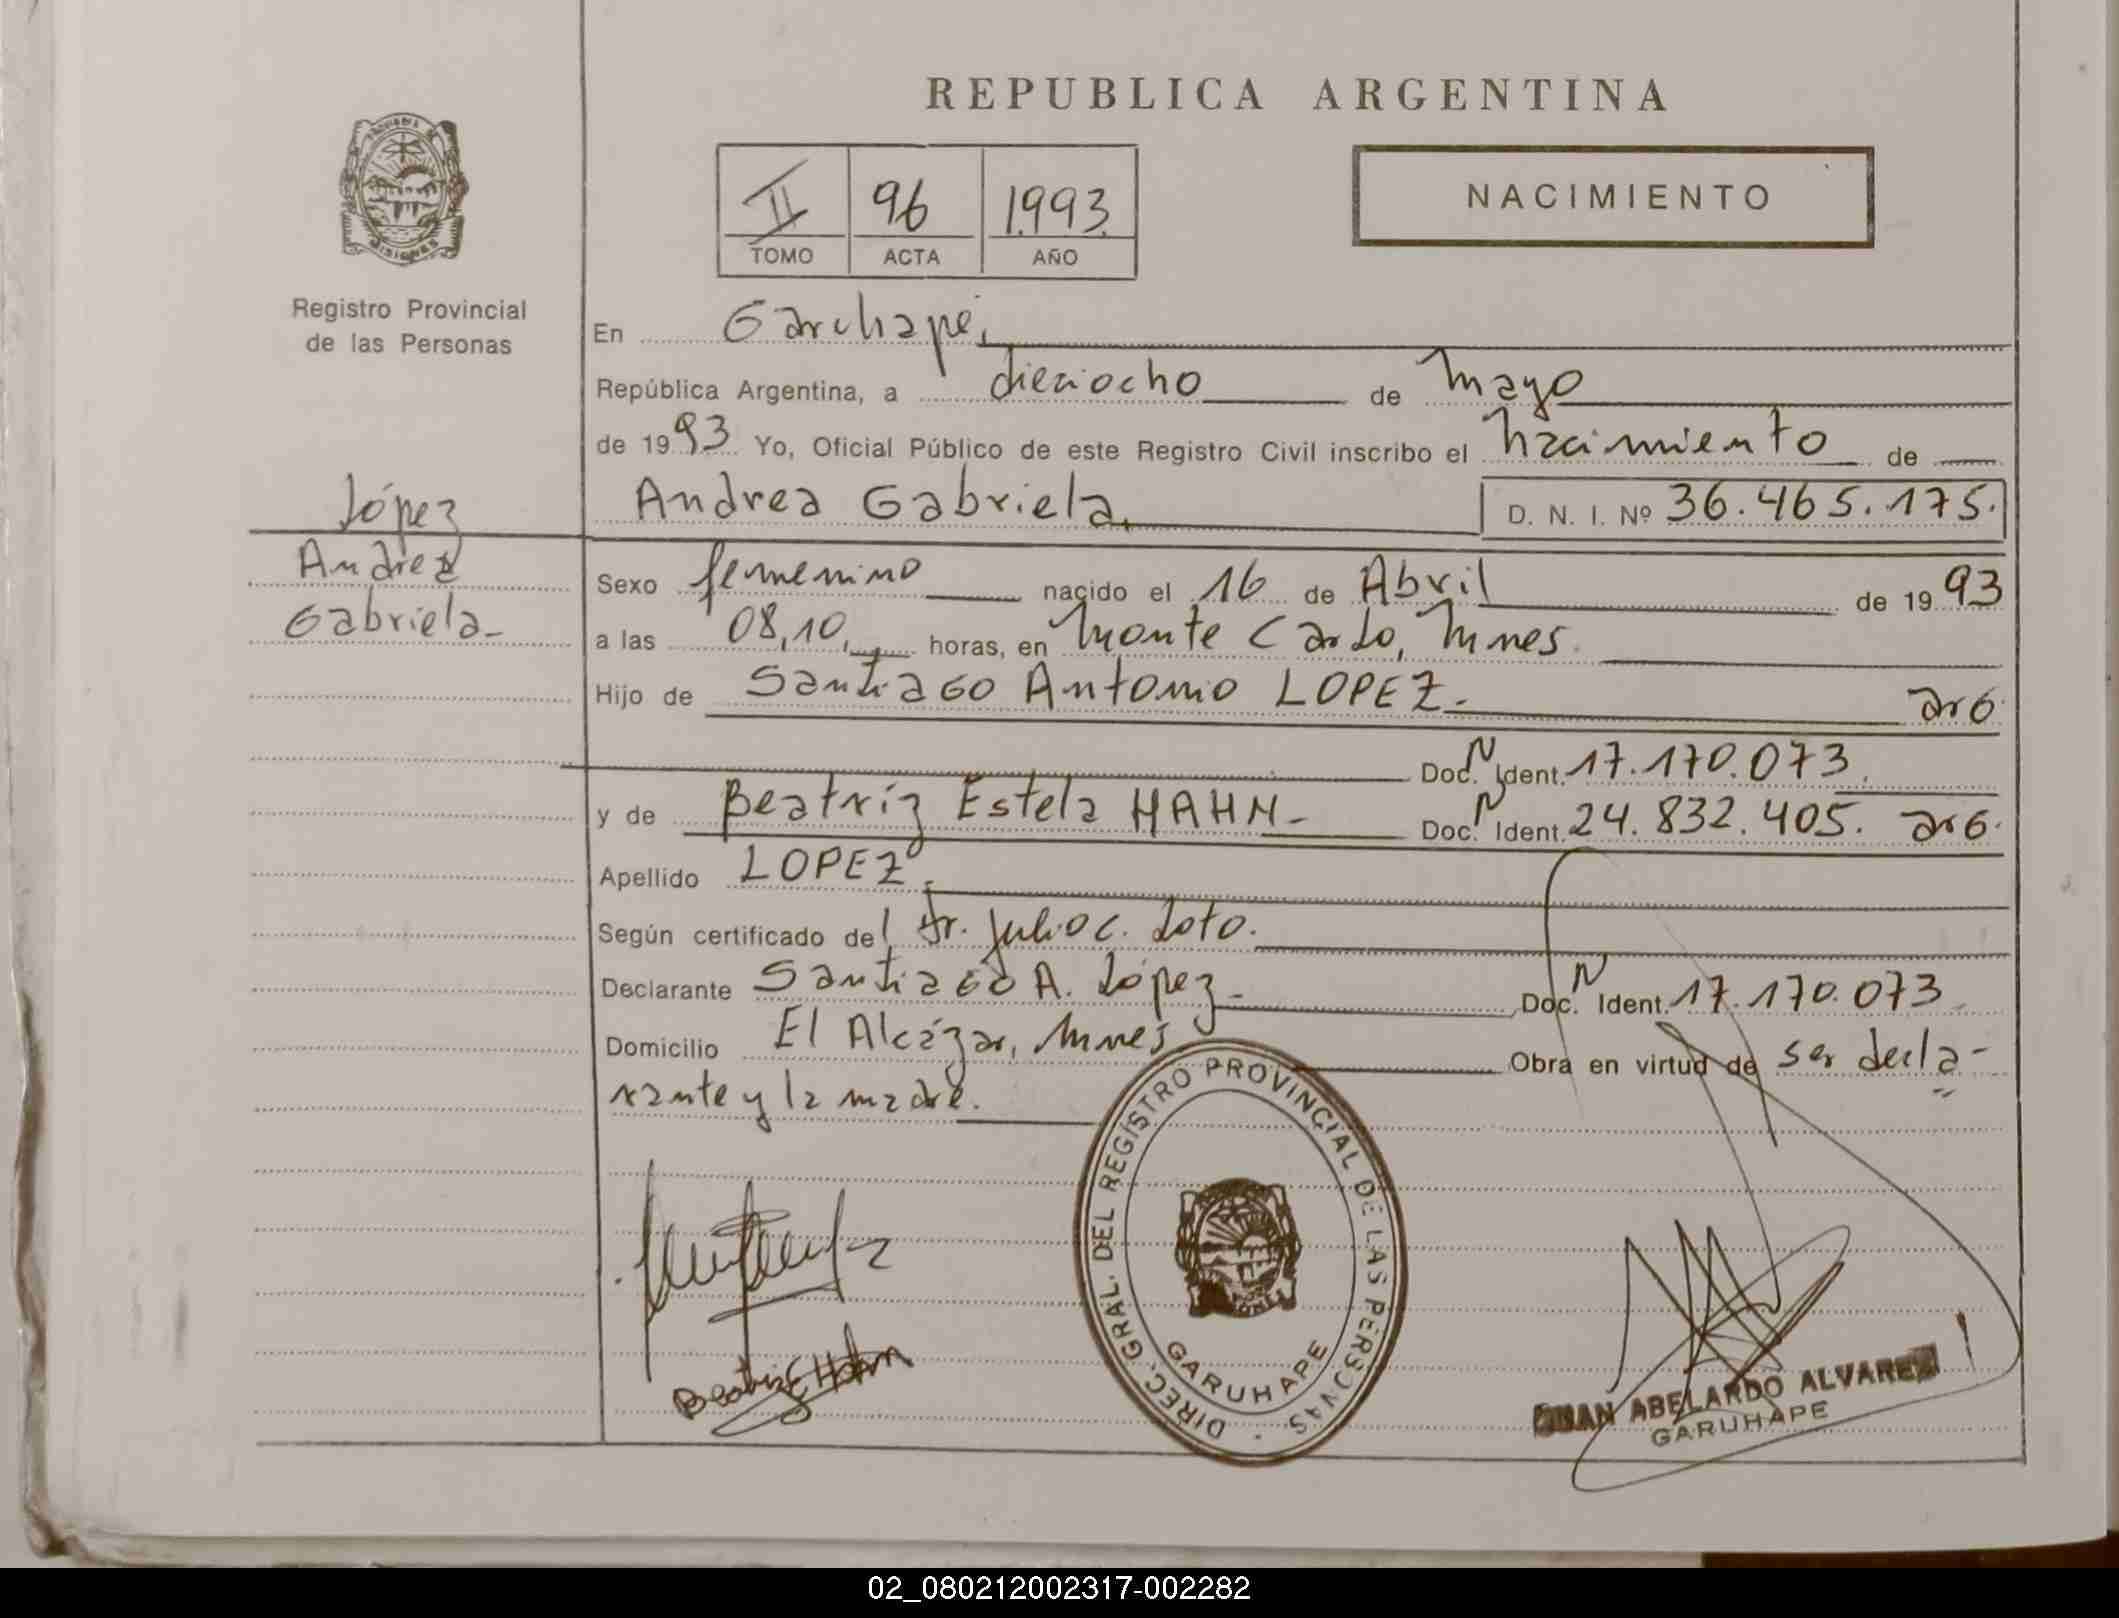 REPUBLICA ARGENTINA
PROVINCIA DE MISIONES
Registro Provincial
de las Personas
II 96 1.993.
TOMO ACTA AÑO
NACIMIENTO
López
Andrea
Gabriela-
En Garuhapé,
República Argentina, a dieciocho de Mayo
de 1993 Yo, Oficial Público de este Registro Civil inscribo el Nacimiento de
Andrea Gabriela. D. N. I. Nº 36.465.175.
Sexo femenino nacido el 16 de Abril de 1993
a las 08,10, horas, en Monte Carlo, Mnes.
Hijo de Santiago Antonio LOPEZ- arg.
Doc. N Ident. 17.170.073.
y de Beatriz Estela HAHN- Doc. N Ident. 24.832.405. arg.
Apellido LOPEZ.
Según certificado del Dr. Julio C. Loto.
Declarante Santiago A. López- Doc. N Ident. 17.170.073
Domicilio El Alcázar, Mnes Obra en virtud de ser decla-
rante y la madre.
Beatriz E Hahn
DIREC. GRAL. DEL REGISTRO PROVINCIAL DE LAS PERSONAS
GARUHAPE
JUAN ABELARDO ALVAREZ
GARUHAPE
02_080212002317-002282